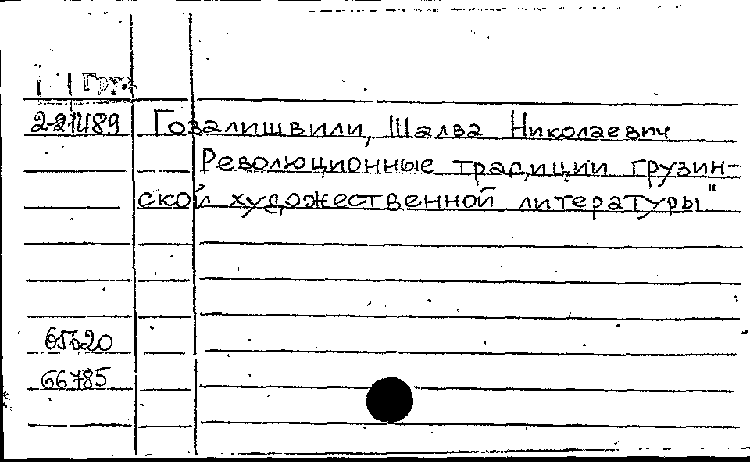 Груз
Гозалишвили, Шалва Николаевич
Революционные традиции грузин-
ской художественной литературы"
66785